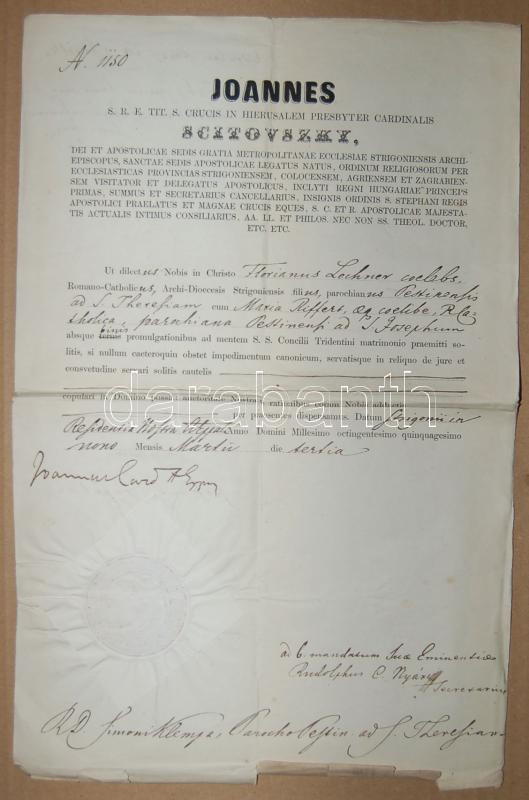 N. 1150
JOANNES
S. R. E. TIT. S. CRUCIS IN HIERUSALEM PRESBYTER CARDINALIS
SCITOVSZKY,
DEI ET APOSTOLICAE SEDIS GRATIA METROPOLITANAE ECCLESIAE STRIGONIENSIS ARCHI-
EPISCOPUS, SANCTAE SEDIS APOSTOLICAE LEGATUS NATUS, ORDINUM RELIGIOSORUM PER
ECCLESIASTICAS PROVINCIAS STRIGONIENSEM, COLOCENSEM, AGRIENSEM ET ZAGRABIEN-
SEM VISITATOR ET DELEGATUS APOSTOLICUS, INCLYTI REGNI HUNGARIAE PRINCEPS
PRIMAS, SUMMUS ET SECRETARIUS CANCELLARIUS, INSIGNIS ORDINIS S. STEPHANI REGIS
APOSTOLICI PRAELATUS ET MAGNAE CRUCIS EQUES, S. C. ET R. APOSTOLICAE MAJESTA-
TIS ACTUALIS INTIMUS CONSILIARIUS, AA. LL. ET PHILOS. NEC NON SS. THEOL. DOCTOR,
ETC. ETC.
Ut dilectus Nobis in Christo Florianus Lechner coelebs
Romano-Catholicus, Archi-Dioecesis Strigoniensis filius, parochianus Pestinensis
ad S. Theresiam cum Maria Riffert, aeq. coelibe, R. Ca-
tholica, parochiana Pestinensi ad S. Josephum
absque ternis binis promulgationibus ad mentem S. S. Concilii Tridentini matrimonio praemitti so-
litis, si nullum caeteroquin obstet impedimentum canonicum, servatisque in reliquo de jure et
consvetudine servari solitis cautelis
copulari in Domino possint auctoritate Nostra, rationibus coram Nobis adductis
per praesentes dispensamus. Datum Strigonii in
Residentia Nostra Anno Domini Millesimo octingentesimo quinquagesimo
nono Mensis Martii die tertia
Joannes Card AEppus
ad E. mandatum Suae Eminentiae
Rudolphus C. Nyáry
Secretarius
R. D. Simoni Klempa, Parocho Pestin. ad S. Theresiam
darabanth